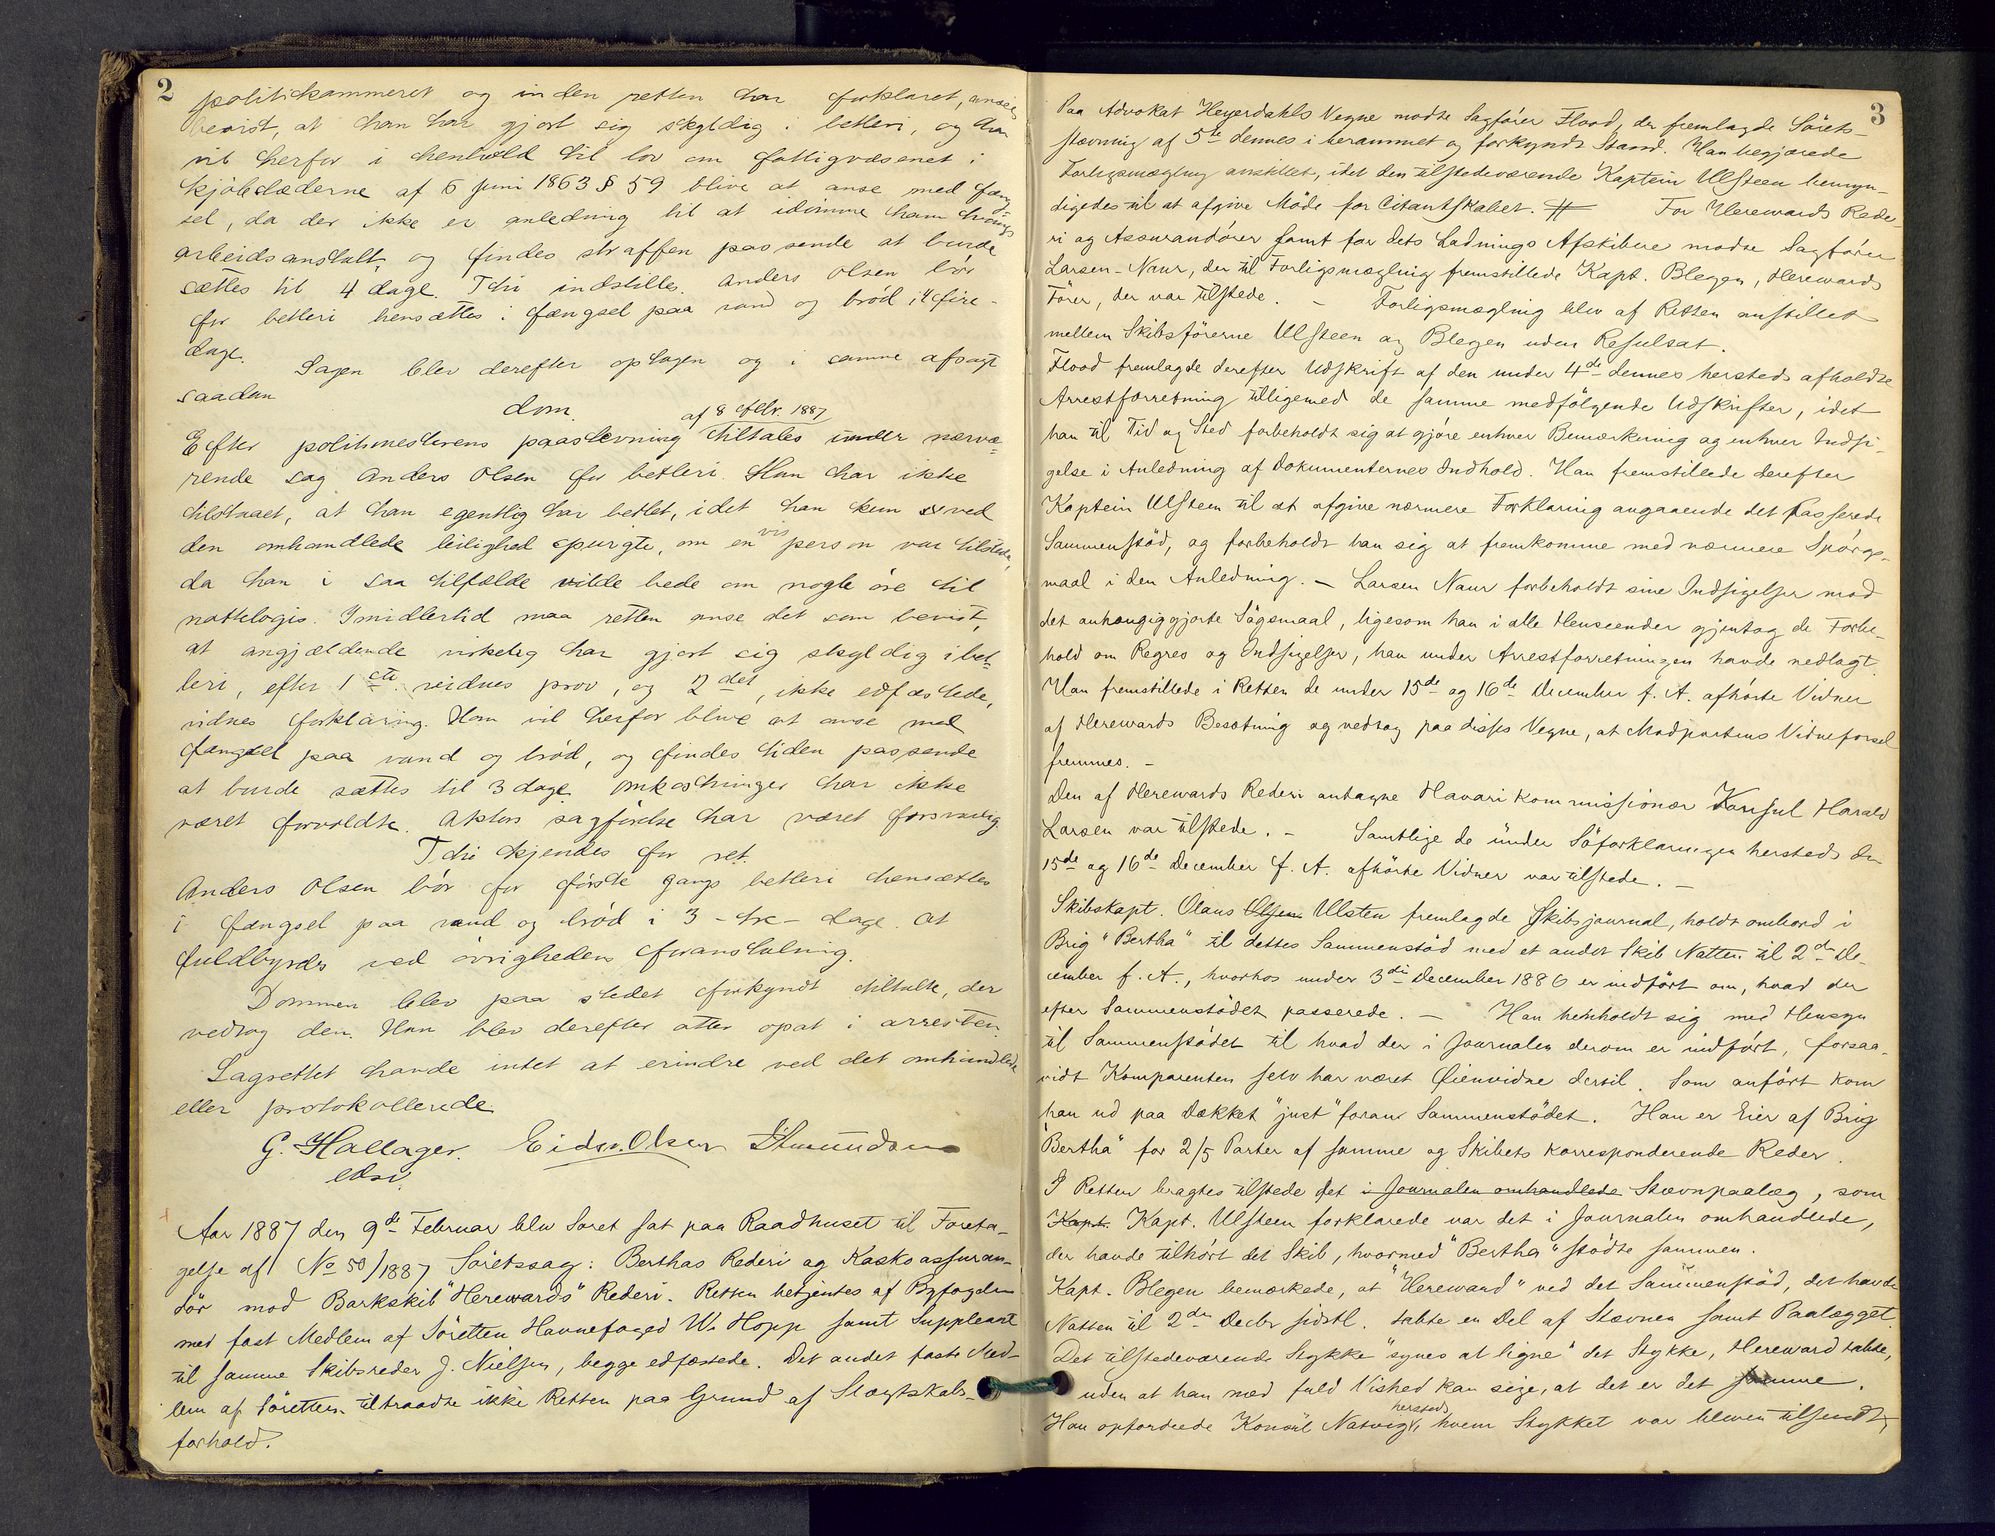 2
politikammeret og inden retten har forklaret, ansees
bevist, at han har gjort sig skyldig i betleri, og han
vil herfor i henhold til lov om fattigvæsenet i
kjøbstæderne af 6 juni 1863 § 59 blive at anse med fæng
sel, da der ikke er anledning til at idømme ham tvangs
arbeidsanstalt, og findes straffen passende at burde
sættes til 4 dage. Thi indstilles. Anders Olsen bør
for betleri hensættes i fængsel paa vand og brød i 4 fire -
dage.
Sagen blev derefter optagen og i samme afsagt
saadan
dom.
Efter politimesterens paastevning af 8 febr. 1887 tiltales under nærvæ-
rende sag Anders Olsen for betleri. Han har ikke
tilstaaet, at han egentlig har betlet, idet han kun ved
den omhandlede leilighed spurgte, om en vis person var tilstede,
da han i saa tilfælde vilde bede om nogle øre til
nattelogis. Imidlertid maa retten anse det som bevist,
at angjældende virkelig har gjort sig skyldig i bet-
leri, efter 1ste vidnes prov, og 2det, ikke edfæstede,
vidnes forklaring. Han vil herfor blive at anse med
fængsel paa vand og brød, og findes tiden passende
at burde sættes til 3 dage. Omkostninger har ikke
været forvoldte. Aktors sagførelse har været forsvarlig.
Thi kjendes for ret.
Anders Olsen bør for første gangs betleri hensættes
i fængsel paa vand og brød i 3 - tre - dage. At
fuldbyrdes ved øvrighedens foranstaltning.
Dommen blev paa stedet forkyndt tiltalte, der
vedtog den. Han blev derefter atter opsat i arresten.
Lagrettet havde intet at erindre ved det omhandlede
eller protokollerede
G. Hallager. Eids. Olsen Amundsen
Aar 1887 den 9de Februar blev Søret sat paa Raadhuset til Foreta-
gelse af No 50/1887 Søretssag: Berthas Rederi og Kaskoassuran-
dør mod Barkskib "Herewards" Rederi. Retten betjentes af Byfogden
med fast Medlem af Søretten Havnefoged W. Hopp samt Suppleant
til samme Skibsreder J. Nielsen, begge edfæstede. Det andet faste Med-
lem af Søretten tiltraadte ikke Retten paa Grund af Slægtskabs
forhold.
3
Paa Advokat Heyerdahls Vegne mødte Sagfører Flood, der fremlagde Sørets-
stævning af 5te dennes i berammet og forkyndt Stand. Han begjærede
Forligsmægling anstillet, idet den tilstedeværende Kaptein Ulsteen bemyn-
digedes til at afgive Møde for Citantskabet. # For Herewards Rede-
ri og Assurandører samt for dets Ladnings Afskibere mødte Sagfører
Larsen-Naur, der til Forligsmægling fremstillede Kapt. Blegen, Herewards
Fører, der var tilstede. - Forligsmægling blev af Retten anstillet
mellem Skibsførerne Ulsteen og Blegen uden Resultat.
Flood fremlagde derefter Udskrift af den under 4de dennes hersteds afholdte
Arrestforretning tilligemed de samme medfølgende Udskrifter, idet
han til Tid og Sted forbeholdt sig at gjøre enhver Bemærkning og enhver Indsi-
gelse i Anledning af Dokumenternes Indhold. Han fremstillede derefter
Kaptein Ulsteen til at afgive nærmere Forklaring angaaende det passerede
Sammenstød, og forbeholdt han sig at fremkomme med nærmere Spørgs-
maal i den Anledning. - Larsen Naur forbeholdt sine Indsigelser mod
det anhængiggjorte Søgsmaal, ligesom han i alle Henseender gjentog de Forbe-
hold om Regres og Indsigelser, han under Arrestforretningen havde nedlagt.
Han fremstillede i Retten de under 15de og 16de December f. A. afhørte Vidner
af Herewards Besætning og vedtog paa disses Vegne, at Modpartens Vidneførsel
fremmes. -
Den af Herewards Rederi antagne Havarikommissionær Konsul Harald
Larsen var tilstede. - Samtlige de under Søforklaringen hersteds den
15de og 16de December f. A. afhørte Vidner var tilstede. -
Skibskapt. Olaus Olsen Ulsten fremlagde Skibsjournal, holdt ombord i
Brig "Bertha" til dettes Sammenstød med et andet Skib Natten til 2den De-
cember f. A., hvorhos under 3die December 1886 er indført om, hvad der
efter Sammenstødet passerede. - Han henholdt sig med Hensyn
til Sammenstødet til hvad der i Journalen derom er indført, forsaa-
vidt Komparenten selv har været Øienvidne dertil. Som anført kom
han ud paa Dækket "just" foran Sammenstødet. Han er Eier af Brig
"Bertha" for 2/5 Parter af samme og Skibets korresponderende Reder.
I Retten bragtes tilstede det i Journalen omhandlede Stævnpaalæg, som
Kapt. Kapt. Ulsteen forklarede var det i Journalen omhandlede,
der havde tilhørt det Skib, hvormed "Bertha" stødte sammen.
Kapt. Blegen bemærkede, at "Hereward" ved det Sammenstød, det havde
Natten til 2den Decbr sidstl. tabte en Del af Stævnen samt Paalægget.
Det tilstedeværende Stykke "synes at ligne" det Stykke, Hereward tabte,
uden at han med fuld Vished kan sige, at det er det samme.
Han opfordrede Konsul Natvig hersteds, hvem Stykket var bleven tilsendt,